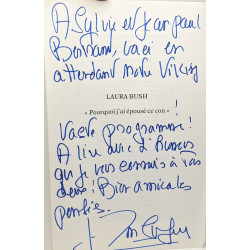 A Sylvie et Jean paul
Bertrand, ceci en
attendant notre
LAURA BUSH
« Pourquoi j'ai épousé ce con »
Vaste programme !
A lire avec l'humour
que je vous connais à tous
deux ! Bien amicales
pensées.